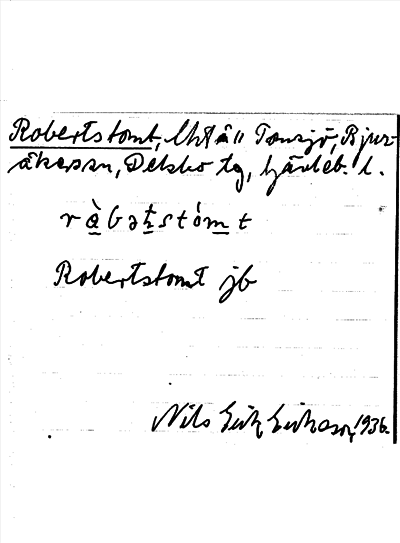 Robertstomt, Tomsjö, Bjur-
åkers sn, Delsbo tg, Gävleb. l.
ràbəʈstómt
Robertstomt jb
Nils Erik Eriksson, 1936.